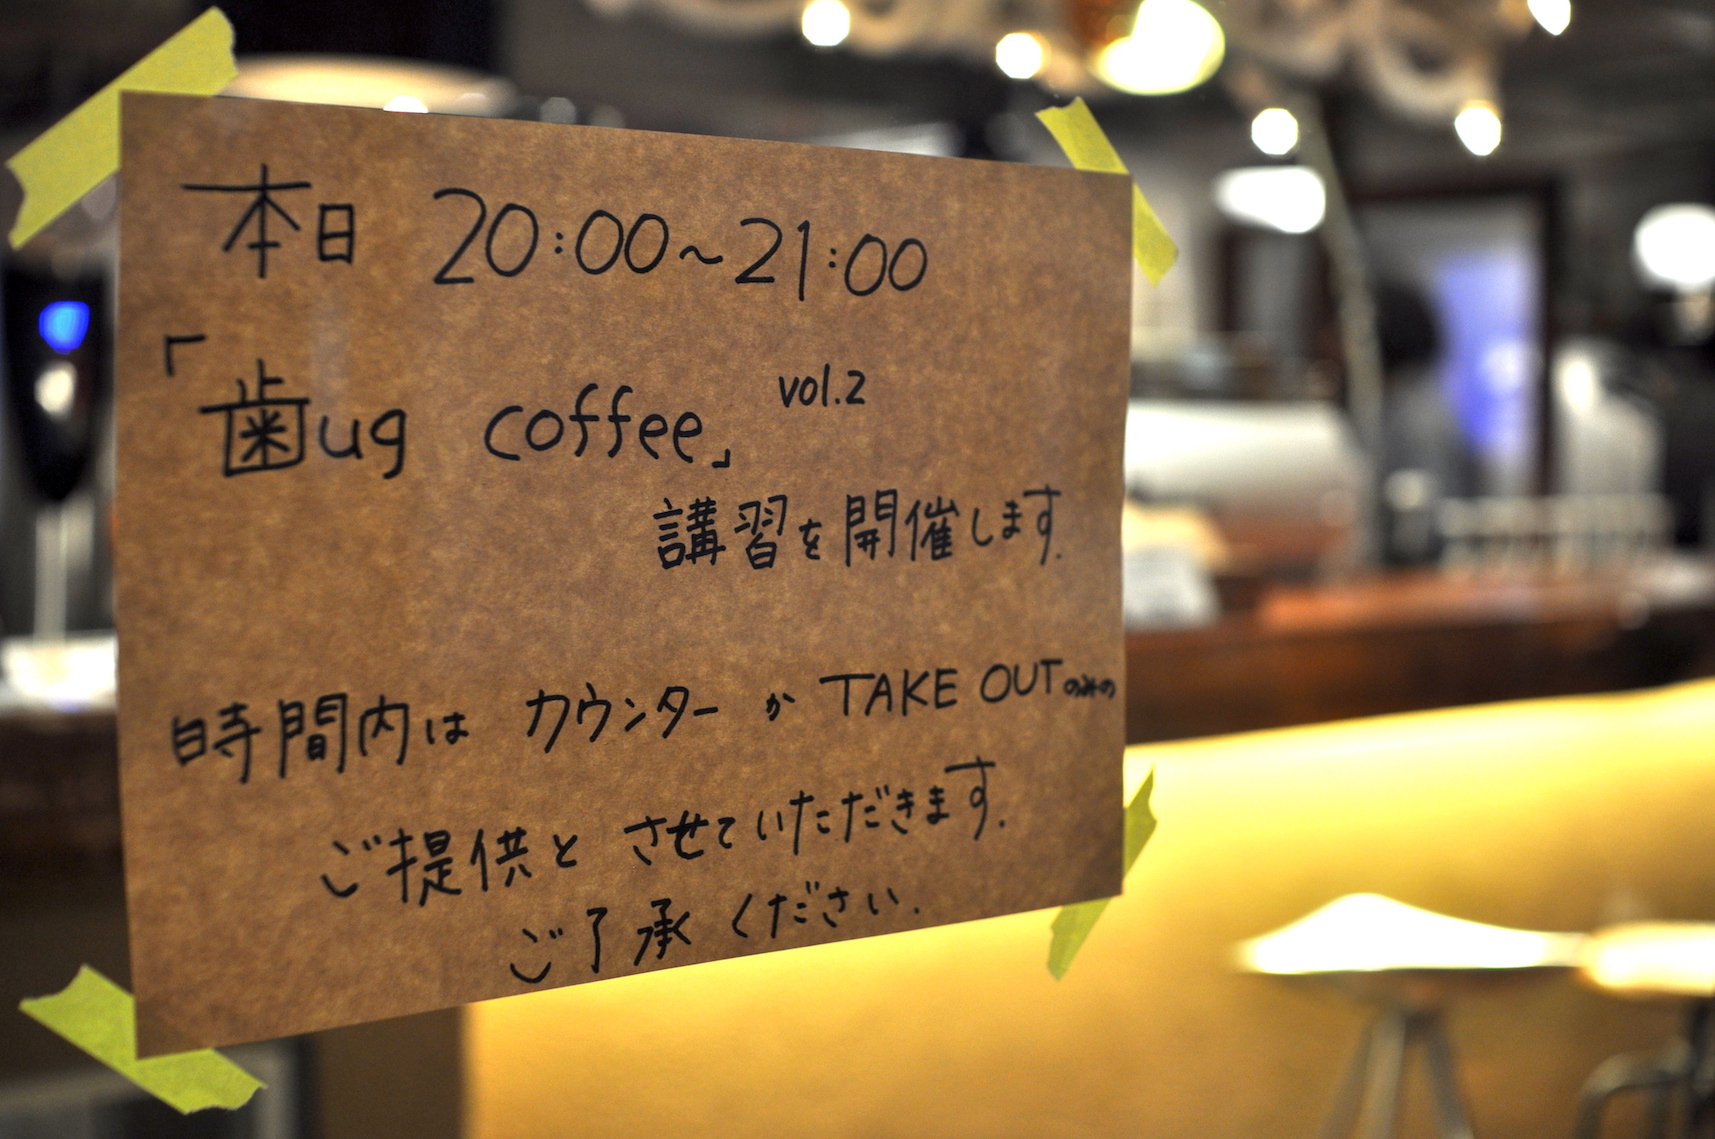 本日 20:00～21:00
「歯ug coffee」 vol.2
講習を開催します.
時間内は カウンター か TAKE OUTのみの
ご提供と させていただきます.
ご了承 ください.